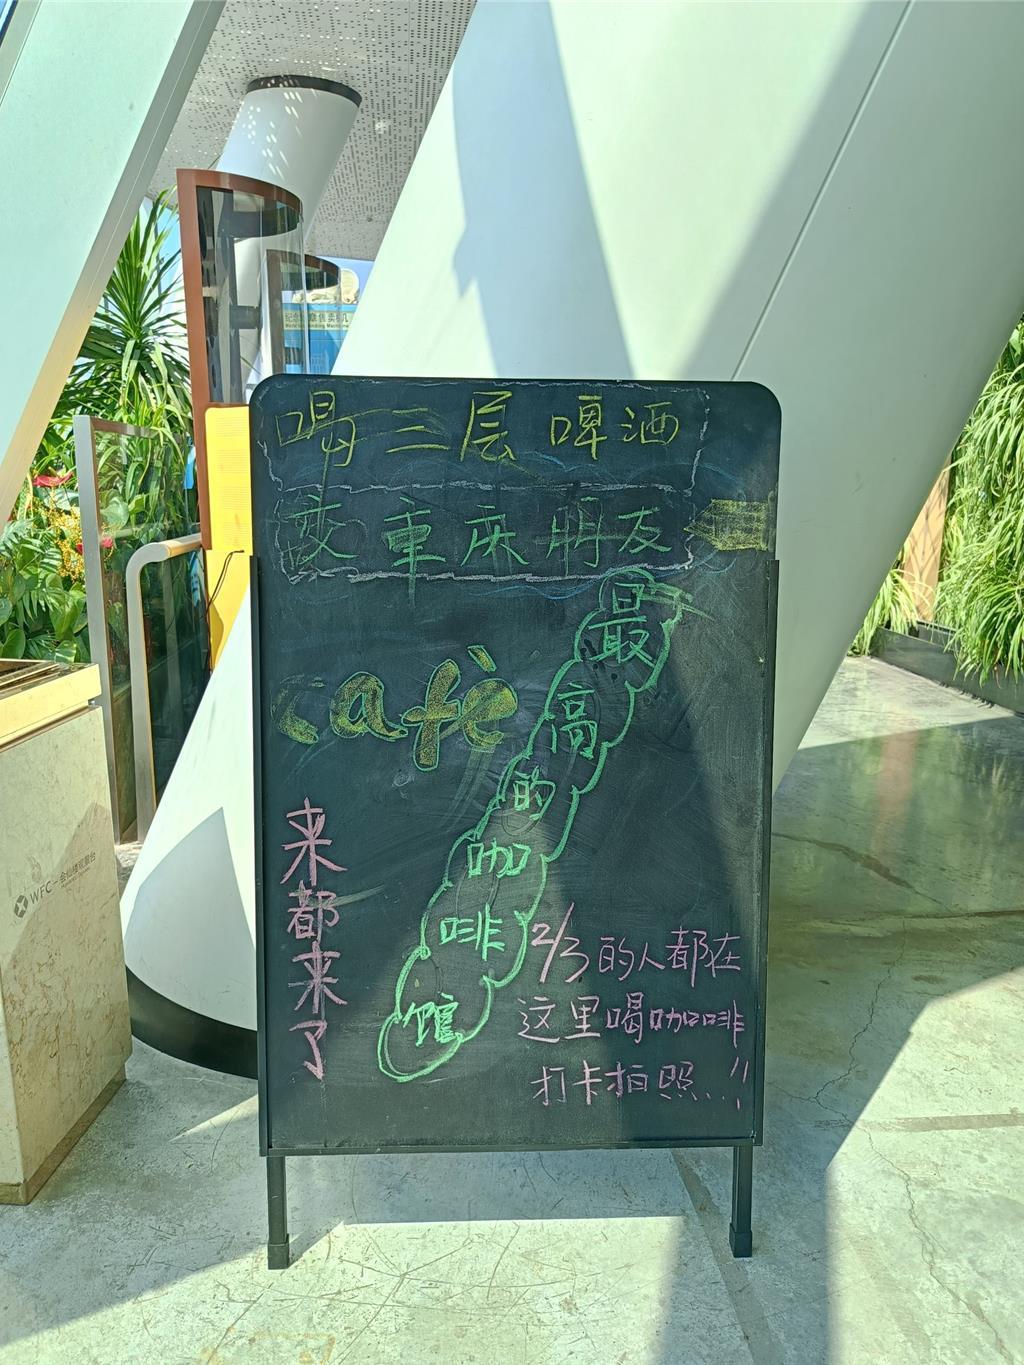 喝三层啤酒
交重庆朋友
café
最高的咖啡馆
来都来了
2/3的人都在
这里喝咖啡
打卡拍照...!!
WFC-会仙楼观景台